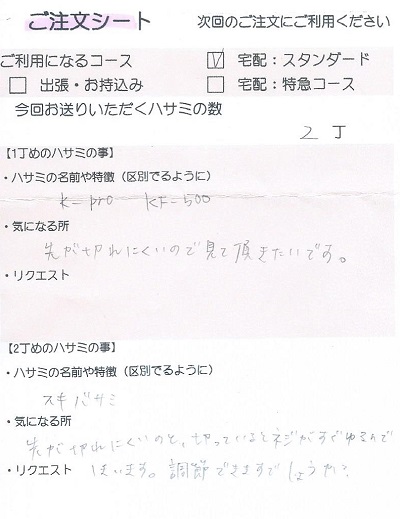 ご注文シート 次回のご注文にご利用ください
ご利用になるコース ☑ 宅配：スタンダード
□ 出張・お持込み □ 宅配：特急コース
今回お送りいただくハサミの数
2 丁
【1丁めのハサミの事】
・ハサミの名前や特徴（区別でるように）
K=pro KF=500
・気になる所
先が切れにくいので見て頂きたいです。
・リクエスト
【2丁めのハサミの事】
・ハサミの名前や特徴（区別でるように）
スキバサミ
・気になる所
先が切れにくいのと、切っているとネジがすぐゆるんで
・リクエスト しまいます。調節できますでしょうか？